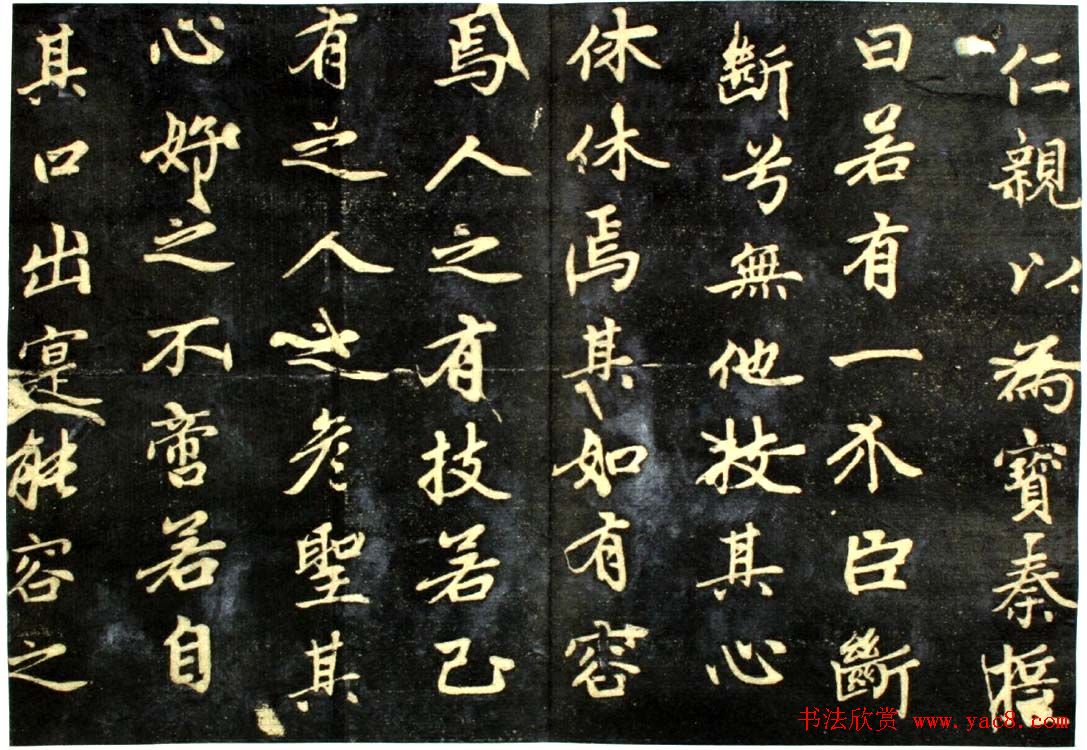 仁親以為寶秦誓
曰若有一个臣斷
斷兮無他技其心
休休焉其如有容
焉人之有技若己
有之人之彦聖其
心好之不啻若自
其口出寔能容之
书法欣赏 www.yac8.com